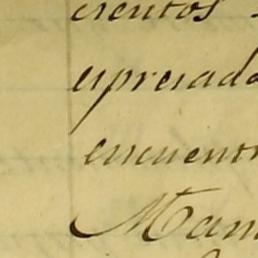 cientos
espresada
encuentr
Man